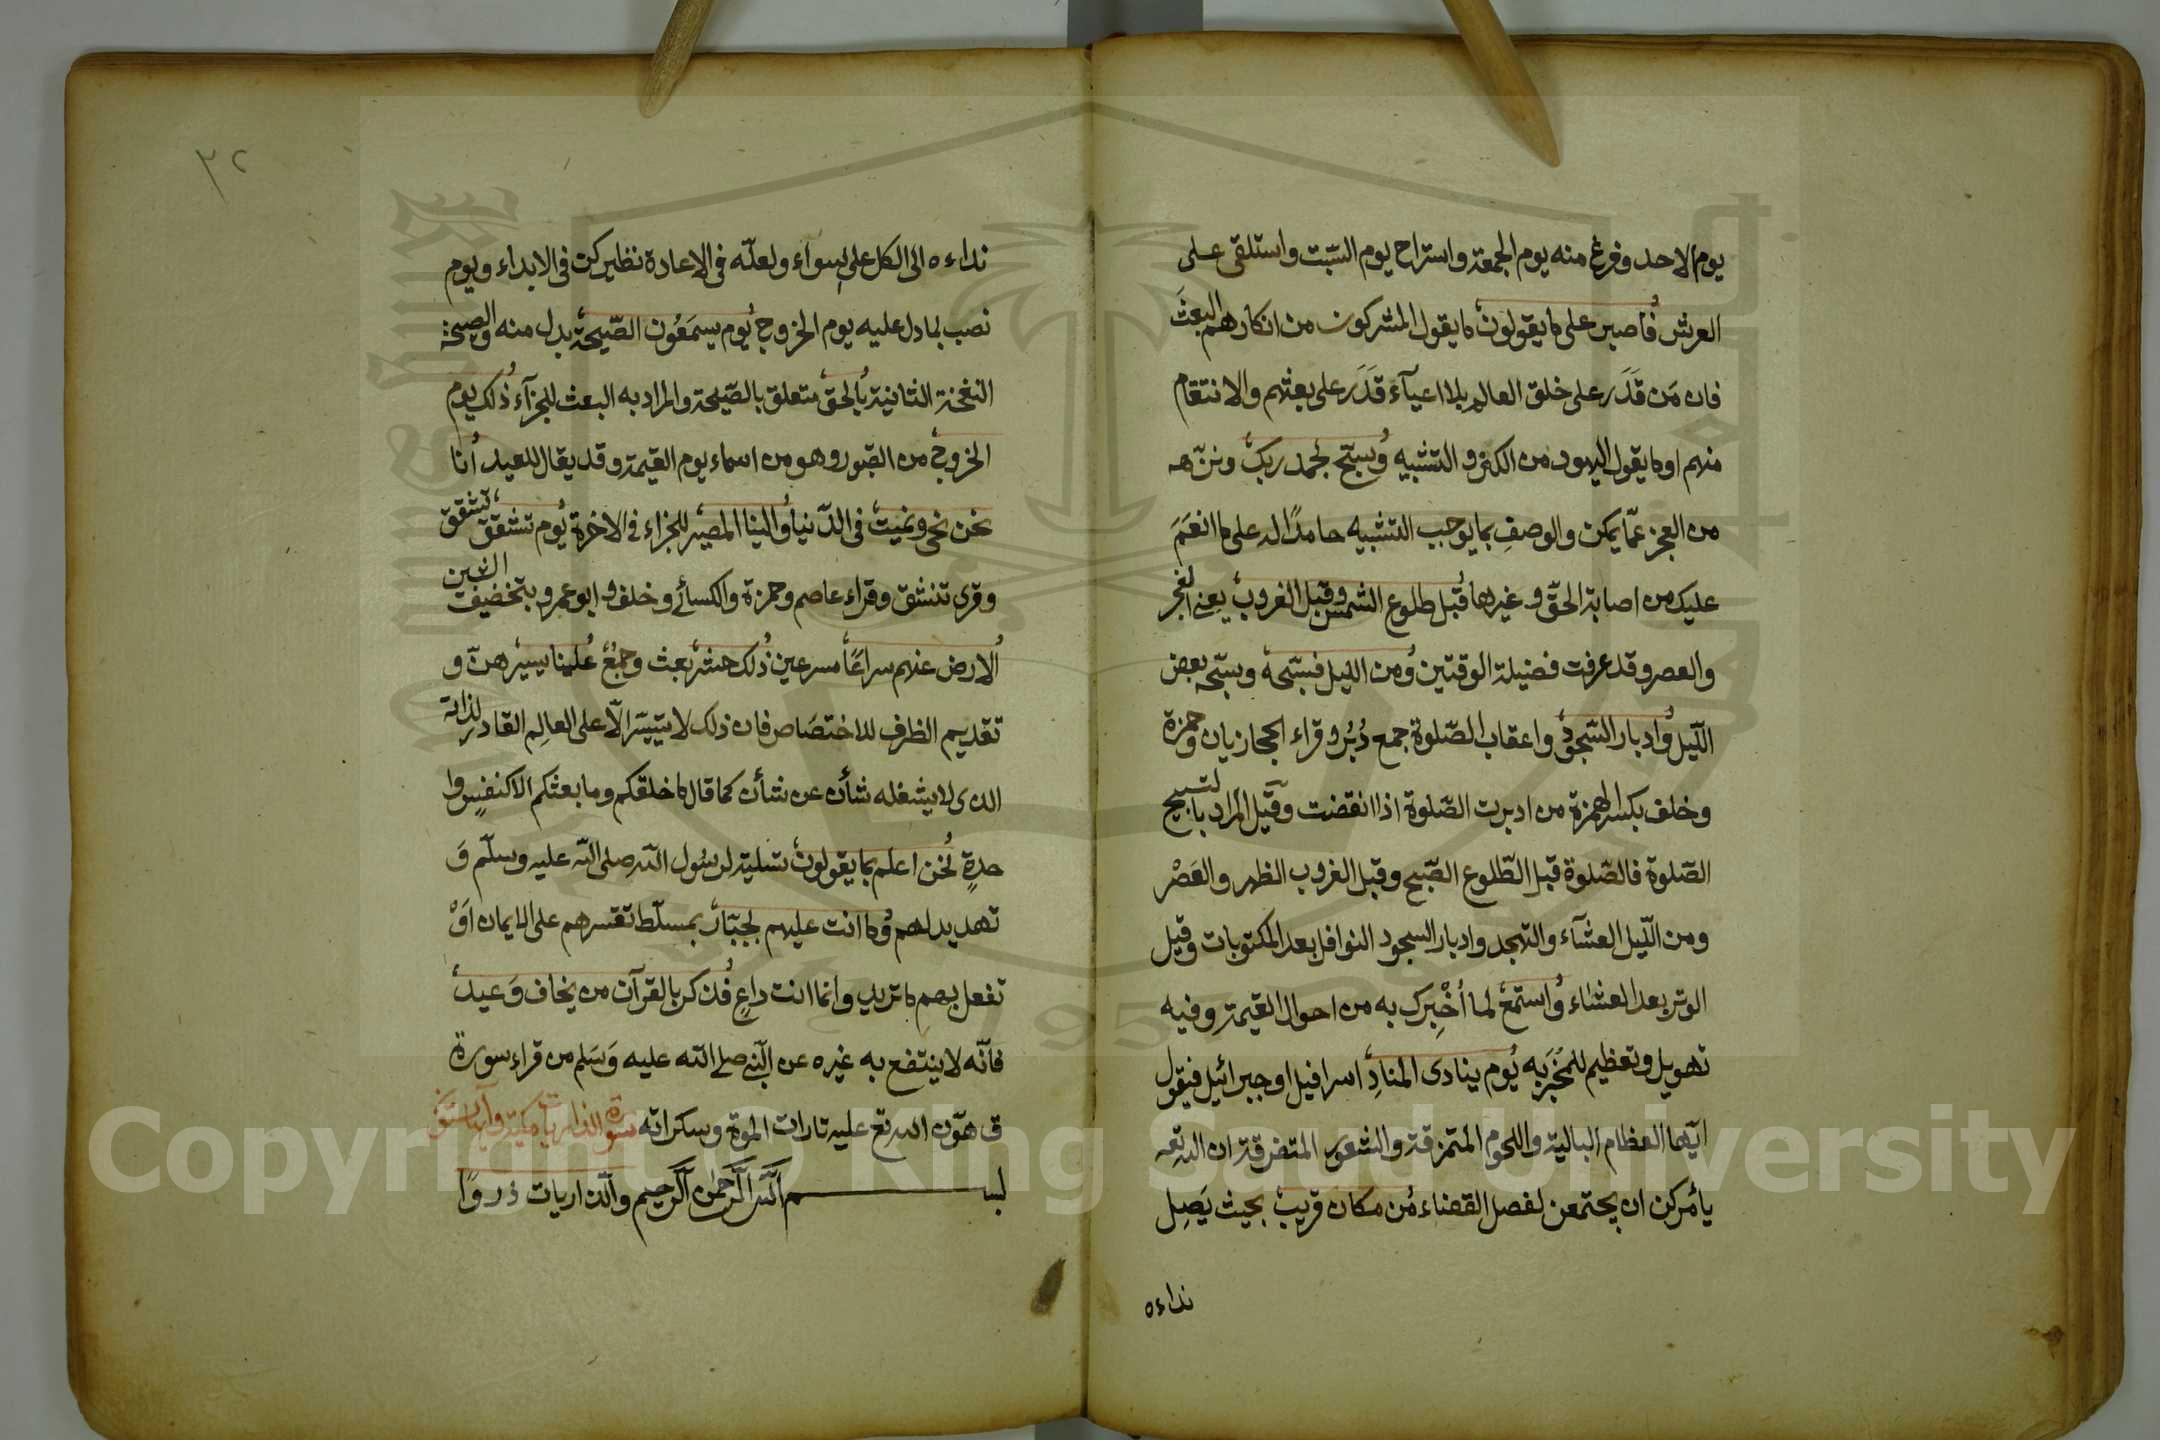 يوم الاحد وفرغ منه يوم الجمعة واستراح يوم السّبت واستلقى على
العرش فاصبر على ما يقولون ما يقول المشركون من انكارهم البعثَ
فان مَن قَدَر على خلق العالم بلا اعيآء قَدَر على بعثهم والانتقام
منهم او ما يقول اليهود من الكفر والتشبيه وسبّح بحمد ربك ونزّهه
من العجز عمّا يمكن والوصفِ بما يوجب التشبيه حامدًا له على ما انعَمَ
عليك من اصابة الحقّ وغيرها قبل طلوع الشمس وقبل الغروب يعنى الفجر
والعصر وقد عرفت فضيلة الوقتين ومن الليل فسبّحه وسبّحه بعض
اللّيل وادبار السّجود واعقاب الصّلوة جمع دُبُر وقراء الحجازيان وحمزة
وخلف بكسر الهمزة من ادبرت الصّلوة اذا انقضت وقيل المراد بالتسبيح
الصّلوة فالصّلوة قبل الطّلوع الصّبح وقبل الغروب الظهر والعَصْر
ومن اللّيل العشآء والتهجد وادبار السجود النوافل بعد المكتوبات وقيل
الوتر بعد العشاء واستمع لما أُخْبِرك به من احوال القيمة وفيه
تهويل وتعظيم للمُخبَر به يوم ينادى المنادِ اسرافيل او جبرائيل فيقول
ايّها العظام البالية واللحوم المتمزقة والشعور المتفرقة ان الله تعه
يأمركن ان يجتمعن لفصل القضاء من مكان قريب بحيث يَصِل
نداءه
٣٢
نداءه الى الكل على سوآء ولعلّه فى الاعادة نظير كن فى الابداء ويوم
نصب بما دل عليه يوم الخروج يوم يسمَعُون الصّيحة بدل منه والصيحة
النفخة الثانية بالحق متعلق بالصّيحة والمراد به البعث للجزآء ذلك يوم
الخروج من القبور وهو من اسماء يوم القيمة وقد يقال للعيد انا
نحن نحى ونميت فى الدّنيا والينا المصير للجزاء فى الاخرة يوم تشقّق تتشقق
وقرى تنشق وقراء عاصم وحمزة والكسائى وخلف وابو عمرو بتخفيف الشين
الارض عنهم سراعًا مسرعين ذلك حشر بعث وجمع علينا يسير هيّن و
تقديم الظرف للاختصَاص فان ذلك لا يتيسّر الّا على العالِم القادر لذاته
الذى لا يشغله شأن عن شأن كما قال ما خلقكم وما بعثكم الا كنفسٍ وا
حدةٍ نحن اعلم بما يقولون تسلية لرسُول اللّه صلى اللّه عليه وسلّم وَ
تهديد لهم وما انت عليهم بجبّار بمسلّط تقسرهم على الايمان اَوْ
تفعل بهم ما تريد وانما انت داعٍ فذكر بالقرآن من يخاف وَعيد
فانّه لا ينتفع به غيره عن النّبى صلى اللّه عليه وَسَلم من قراء سورة
ق هوّن الله تع عليه تارات الموة وسكراته سورة الذاريات مكية وآيها ستون
بسم اللّه الرّحمن الرّحيم والذاريات ذروًا